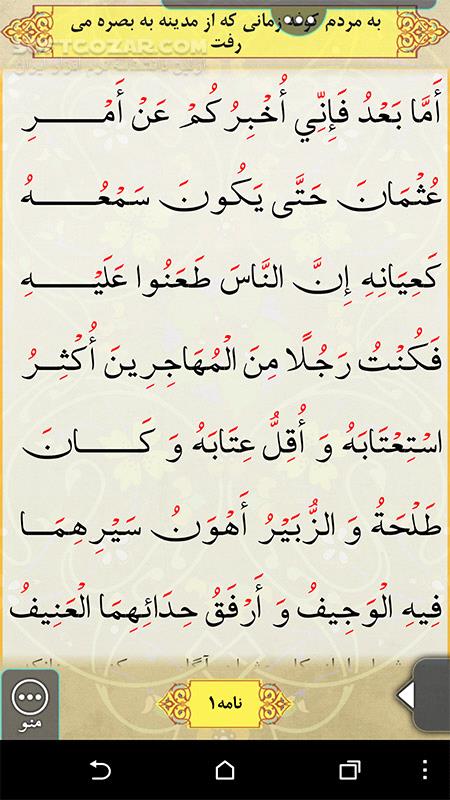 به مردم کوفه زمانی که از مدینه به بصره می
رفت
SOFTGOZAR.COM
أَمَّا بَعْدُ فَإِنِّي أُخْبِرُ كُمْ عَنْ أَمْـــــرِ
عُثْمَانَ حَتَّى يَكُونَ سَمْعُـــــهُ
كَعِيَانِهِ إِنَّ النَّاسَ طَعَنُوا عَلَيْـــــهِ
فَكُنْتُ رَجُلًا مِنَ الْمُهَاجِرِينَ أُكْثِـرُ
اسْتِعْتَابَهُ وَ أُقِلُّ عِتَابَهُ وَ كَـــــانَ
طَلْحَةُ وَ الزُّبَيْرُ أَهْوَنُ سَيْرِهِمَـــا
فِيهِ الْوَجِيفُ وَ أَرْفَقُ حِدَائِهِمَا الْعَنِيفُ
نامه۱
منو